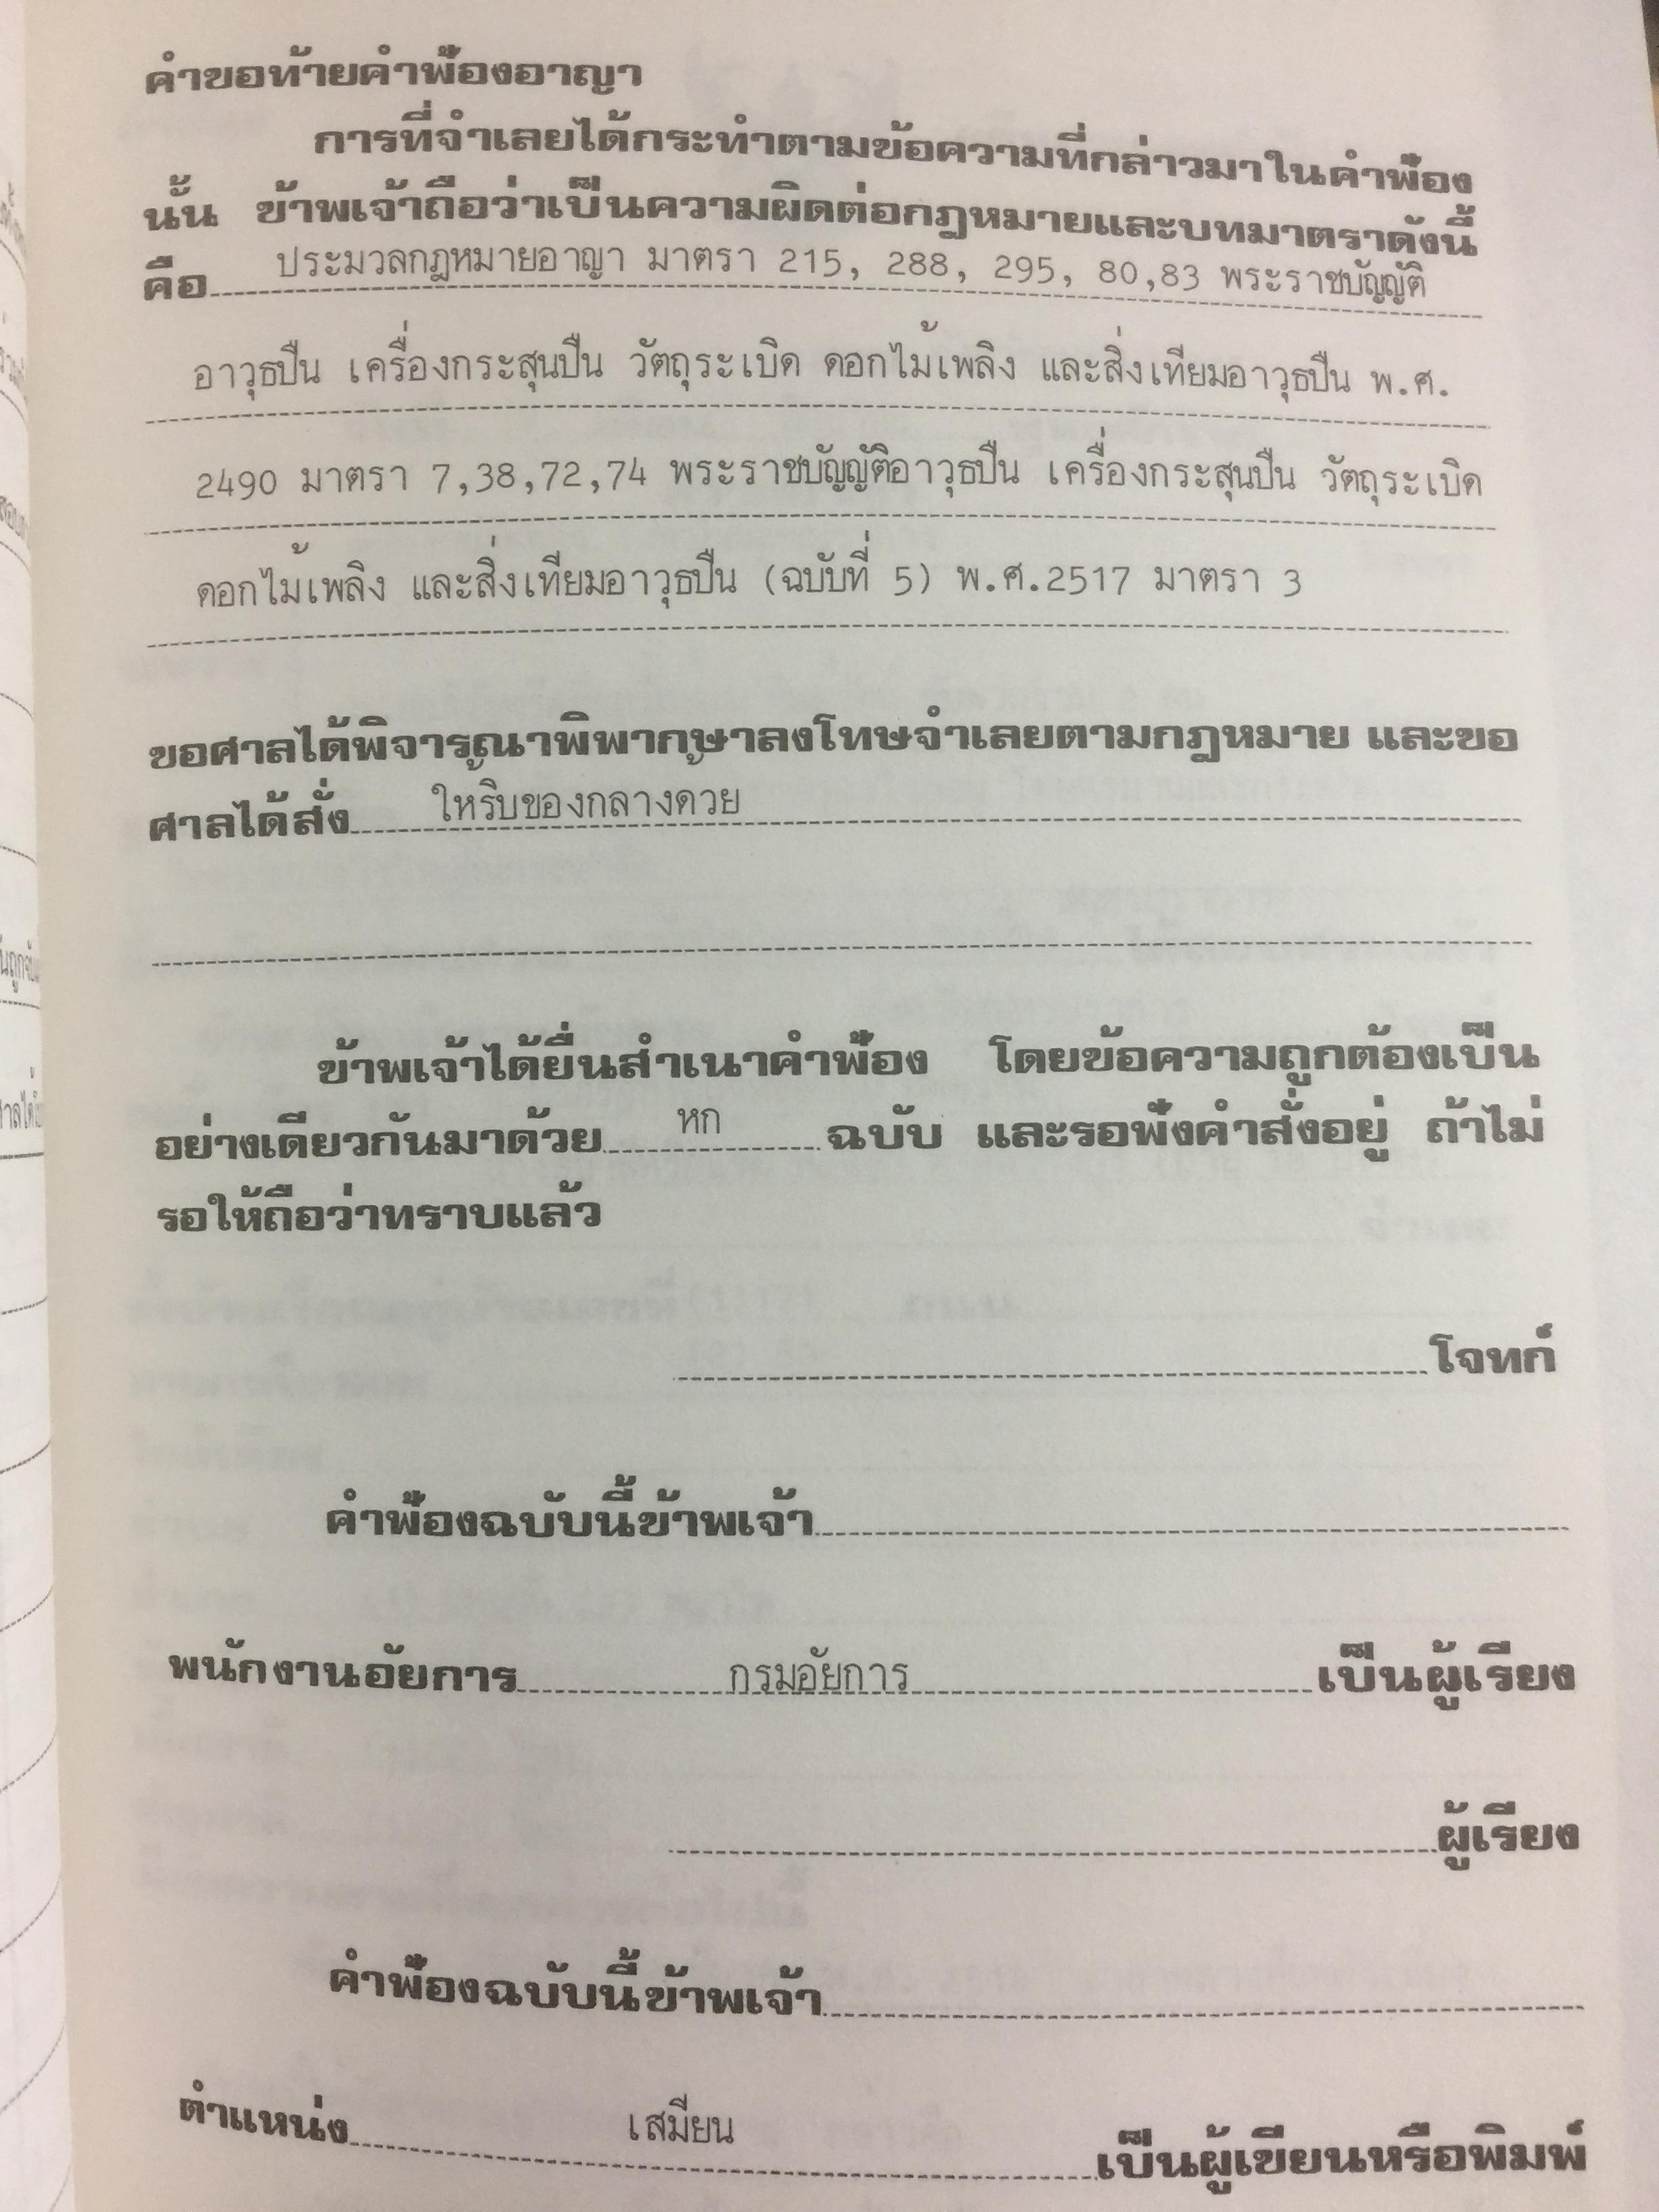 คำขอท้ายคำฟ้องอาญา
การที่จำเลยได้กระทำตามข้อความที่กล่าวมาในคำฟ้อง
นั้น ข้าพเจ้าถือว่าเป็นความผิดต่อกฎหมายและบทมาตราดังนี้
คือ ประมวลกฎหมายอาญา มาตรา 215, 288, 295, 80,83 พระราชบัญญัติ
อาวุธปืน เครื่องกระสุนปืน วัตถุระเบิด ดอกไม้เพลิง และสิ่งเทียมอาวุธปืน พ.ศ.
2490 มาตรา 7,38,72,74 พระราชบัญญัติอาวุธปืน เครื่องกระสุนปืน วัตถุระเบิด
ดอกไม้เพลิง และสิ่งเทียมอาวุธปืน (ฉบับที่ 5) พ.ศ.2517 มาตรา 3
ขอศาลได้พิจารณาพิพากษาลงโทษจำเลยตามกฎหมาย และขอ
ศาลได้สั่ง ให้ริบของกลางด้วย
ข้าพเจ้าได้ยื่นสำเนาคำฟ้อง โดยข้อความถูกต้องเป็น
อย่างเดียวกันมาด้วย หก ฉบับ และรอฟังคำสั่งอยู่ ถ้าไม่
รอให้ถือว่าทราบแล้ว
โจทก์
คำฟ้องฉบับนี้ข้าพเจ้า
พนักงานอัยการ กรมอัยการ เป็นผู้เรียง
ผู้เรียง
คำฟ้องฉบับนี้ข้าพเจ้า
ตำแหน่ง เสมียน เป็นผู้เขียนหรือพิมพ์